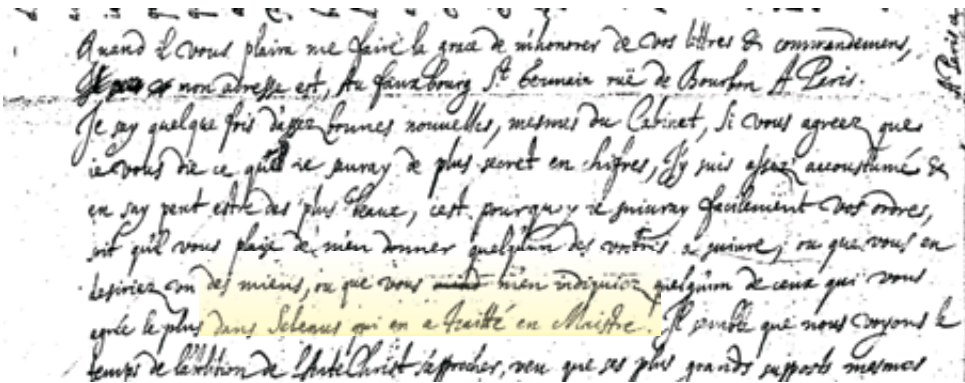 Quand Il vous plaira me faire la grace de m'honorer de vos lettres & commandemens,
mon adresse est, Au fauxbourg St. Germain rüe de Bourbon A Paris.
Je say quelque fois d'assez bonnes nouvelles, mesmes du Cabinet, Si vous agreez que
ie vous die ce que ie sauray de plus secret en chifres, J'y suis assez accoustumé &
en say peut estre des plus beaux, c'est pourquoy ie suivray facilement vos ordres,
soit qu'il vous plaise de m'en donner quelqu'un des vostres a suivre, ou que vous en
desiriez un des miens, ou que vous m'en indiquiez quelqu'un de ceux qui vous
agrée le plus dans Selenus qui en a traitté en Maistre. Il semble que nous voyons le
temps de l'Ante Christ s'approcher, veu que ses plus grands supposts mesmes
A Paris